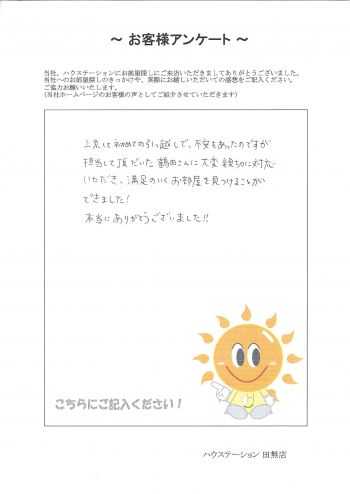 ～ お客様アンケート ～
当社、ハウステーションにお部屋探しにご来店いただきましてありがとうございました。
当社へのお部屋探しのきっかけや、実際にお越しいただいての感想をご記入ください。
ご協力お願いいたします。
(当社ホームページのお客様の声としてご紹介させていただきます)
上京して初めての引っ越しで、不安もあったのですが
担当して頂だいた鶴田さんに大変親切に対応
いただき、満足のいくお部屋を見つけることが
できました!
本当にありがとうございました!!
こちらにご記入ください!
ハウステーション 田無店